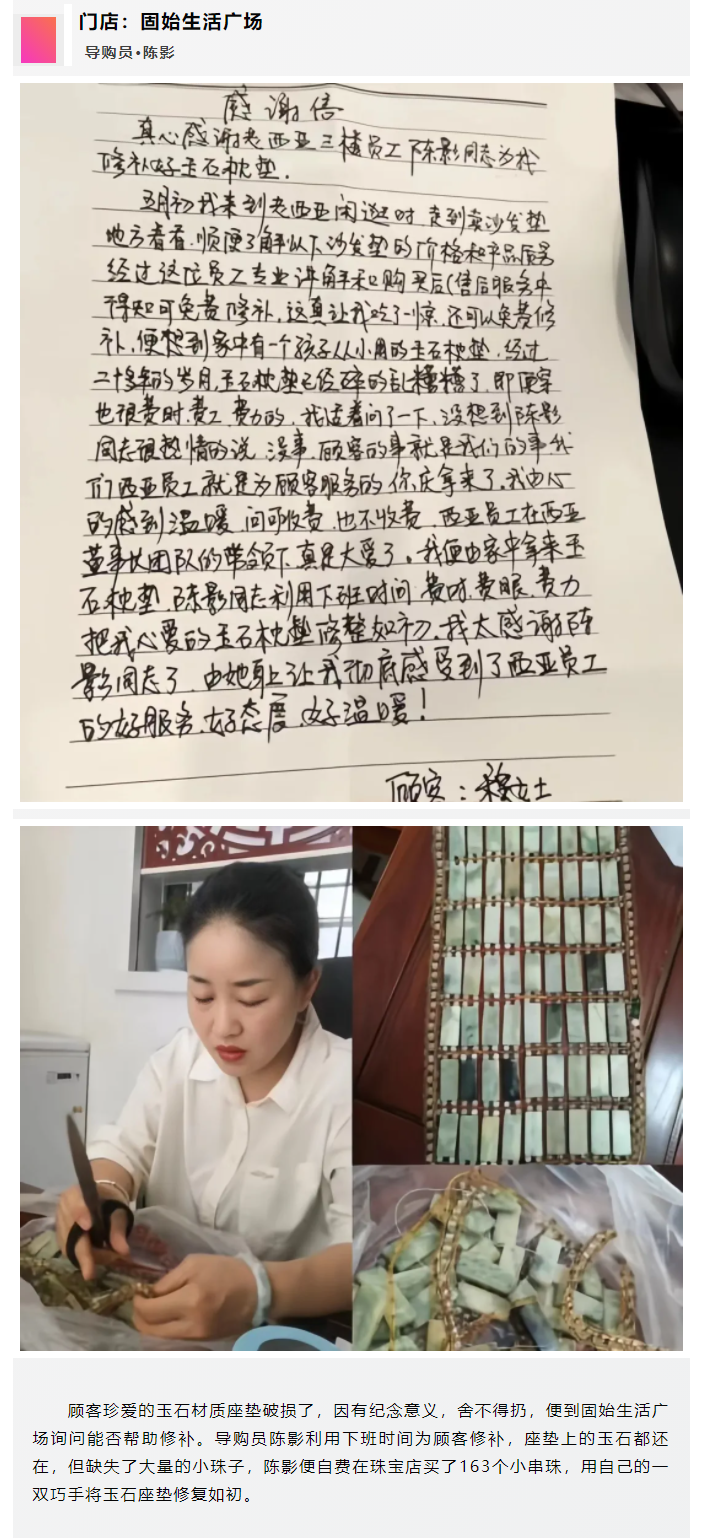 门店：固始生活广场
导购员•陈影
感谢信
真心感谢老西亚三楼员工陈影同志为我
修补好玉石枕垫.
五月初我来到老西亚闲逛时,走到卖沙发垫
地方看看.顺便了解以下沙发垫的价格和产品质另
经过这位员工专业讲解和购买后(售后服务中
得知可免费修补,这真让我吃了一惊,还可以免费修
补,便想到家中有一个孩子从小用的玉石枕垫,经过
二十多年的岁月,玉石枕垫已经碎的乱糟糟了,即便穿
也很费时.费工.费力的,我试着问了一下,没想到陈影
同志很热情的说,没事.顾客的事就是我们的事我
们西亚员工就是为顾客服务的,你庆拿来了.我由心
的感到温暖,问可收费,也不收费,西亚员工在西亚
董事长团队的带领下真是大爱了,我便由家中拿来玉
石枕垫,陈影同志利用下班时间,费时.费眼.费力
把我心爱的玉石枕垫修整如初.我太感谢陈
影同志了,由她身上让我彻底感受到了西亚员工
的好服务.好态度.好温暖!
顾客:穆女士
顾客珍爱的玉石材质座垫破损了，因有纪念意义，舍不得扔，便到固始生活广
场询问能否帮助修补。导购员陈影利用下班时间为顾客修补，座垫上的玉石都还
在，但缺失了大量的小珠子，陈影便自费在珠宝店买了163个小串珠，用自己的一
双巧手将玉石座垫修复如初。